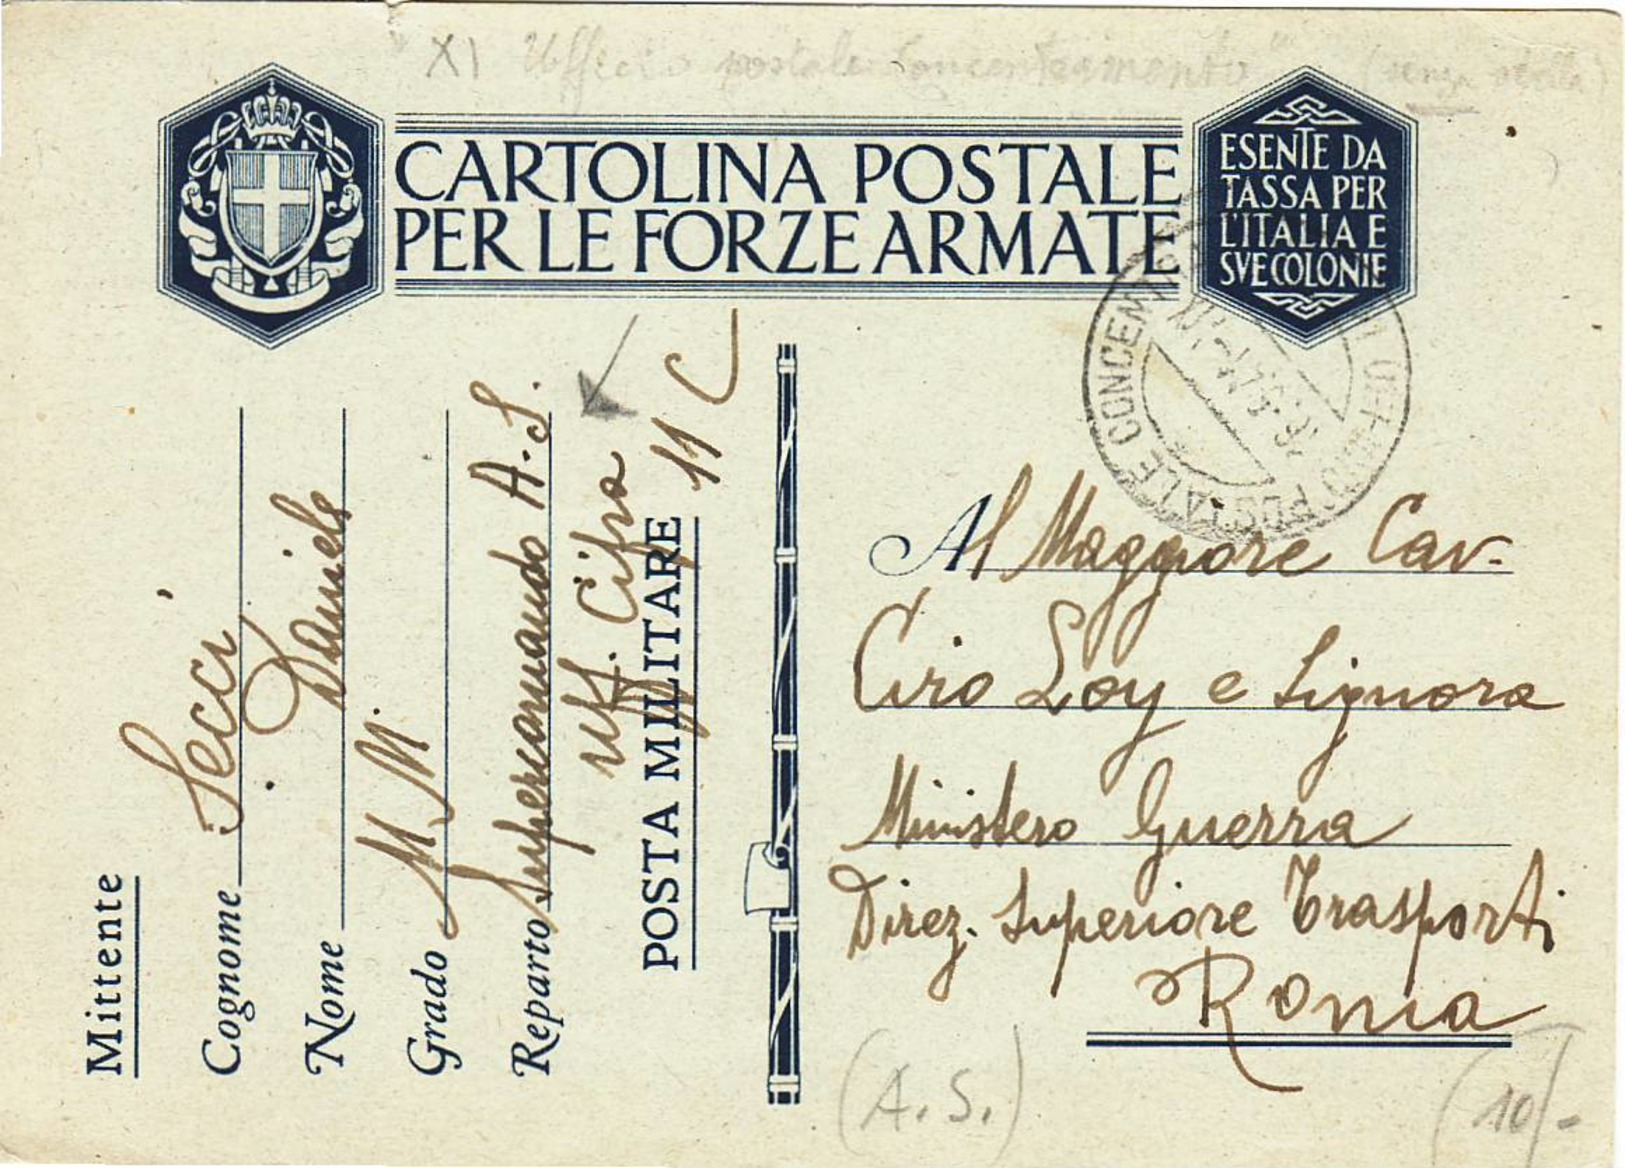 "XI Ufficio postale Concentramento" (senza stelle)
CARTOLINA POSTALE
PER LE FORZE ARMATE
ESENTE DA
TASSA PER
L'ITALIA E
SVE COLONIE
UFFICIO POSTALE CONCENTR
Mittente
Cognome Secci
Nome Daniele
Grado M. M.
Reparto Supercomando A.S.
Uff. Cifra
POSTA MILITARE 11 C
Al Maggiore Cav.
Ciro Loy e Signora
Ministero Guerra
Direz. Superiore Trasporti
Roma
(A.S.)
(10/-